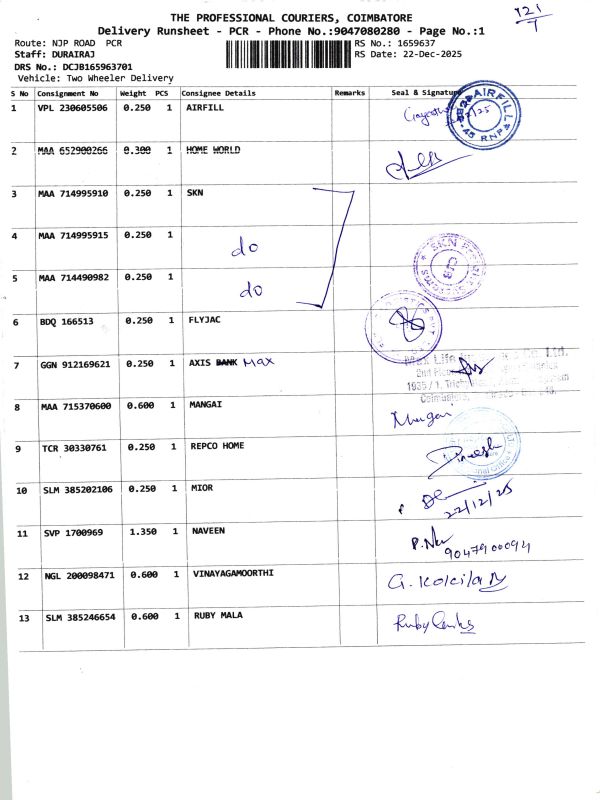 121/7
THE PROFESSIONAL COURIERS, COIMBATORE
Delivery Runsheet - PCR - Phone No.:9047080280 - Page No.:1
Route: NJP ROAD PCR
RS No.: 1659637
Staff: DURAIRAJ
RS Date: 22-Dec-2025
DRS No.: DCJB165963701
Vehicle: Two Wheeler Delivery
S No Consignment No Weight PCS Consignee Details Remarks Seal & Signature
1 VPL 230605506 0.250 1 AIRFILL
AIRFILL 45 RNP
2 MAA 652900266 0.300 1 HOME WORLD
3 MAA 714995910 0.250 1 SKN
4 MAA 714995915 0.250 1 do
5 MAA 714490982 0.250 1 do
SKN
6 BDQ 166513 0.250 1 FLYJAC
7 GGN 912169621 0.250 1 AXIS BANK MAX
Max Life Co. Ltd.
1935/1, Trichy
Coimbatore
8 MAA 715370600 0.600 1 MANGAI Mangai
9 TCR 30330761 0.250 1 REPCO HOME Dineesh
10 SLM 385202106 0.250 1 MIOR
22/12/25
11 SVP 1700969 1.350 1 NAVEEN
9047900094
12 NGL 200098471 0.600 1 VINAYAGAMOORTHI G. Kokila
13 SLM 385246654 0.600 1 RUBY MALA Ruby